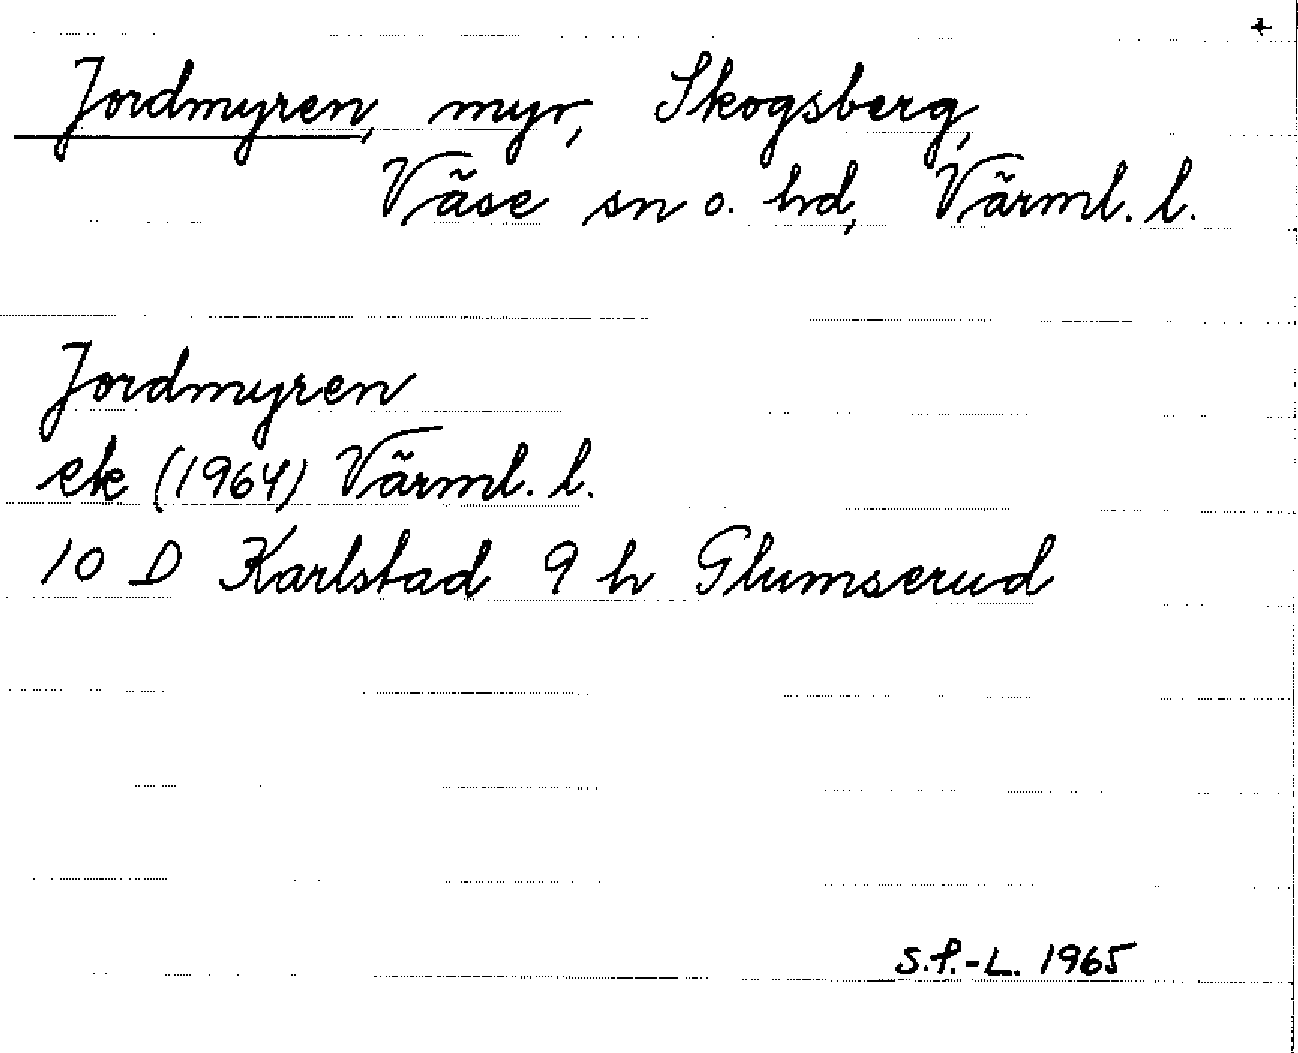 +
Jordmyren, myr, Skogsberg,
Väse sn o. hd, Värml. l.
Jordmyren
ek (1964) Värml. l.
10 D Karlstad 9 h Glumserud
S.P.-L. 1965